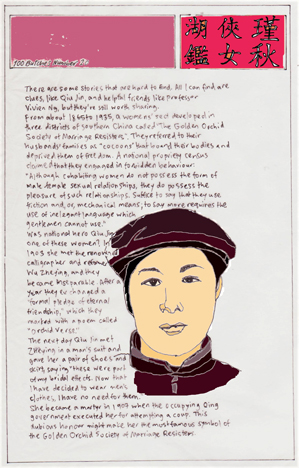 100 Butches Number 20
湖 俠 瑾
鑑 女 秋
There are some stories that are hard to find. All I can find are
clues, like Qiu Jin, and helpful friends like Professor
Vivien Ng, but they're still worth sharing.
From about 1865 to 1935, a womens' sect developed in
three districts of southern China called "The Golden Orchid
Society of Marriage Resisters". They referred to their
husbands' families as "cocoons" that bound their bodies and
deprived them of freedom. A national property census
claimed that they engaged in forbidden behaviour:
"Although cohabiting women do not possess the form of
male female sexual relationships, they do possess the
pleasure of such relationships. Suffice to say that they use
friction and, or, mechanical means; to say more requires the
use of inelegant language which
gentlemen cannot use."
Was national hero Qiu Jin
one of these women? In
1903 she met the renowned
caligrapher and reformer
Wu Zheying, and they
became inseparable. After a
year they exchanged a
"formal pledge of eternal
friendship," which they
marked with a poem called
"Orchid Verse."
The next day Qiu Jin met
Zheying in a man's suit and
gave her a pair of shoes and
skirt, saying "these were part
of my bridal effects. Now that
I have decided to wear men's
clothes, I have no need for them.
She became a martyr in 1907 when the occupying Qing
government executed her for attempting a coup. This
dubious honour might make her the most famous symbol of
the Golden Orchid Society of Marriage Resisters